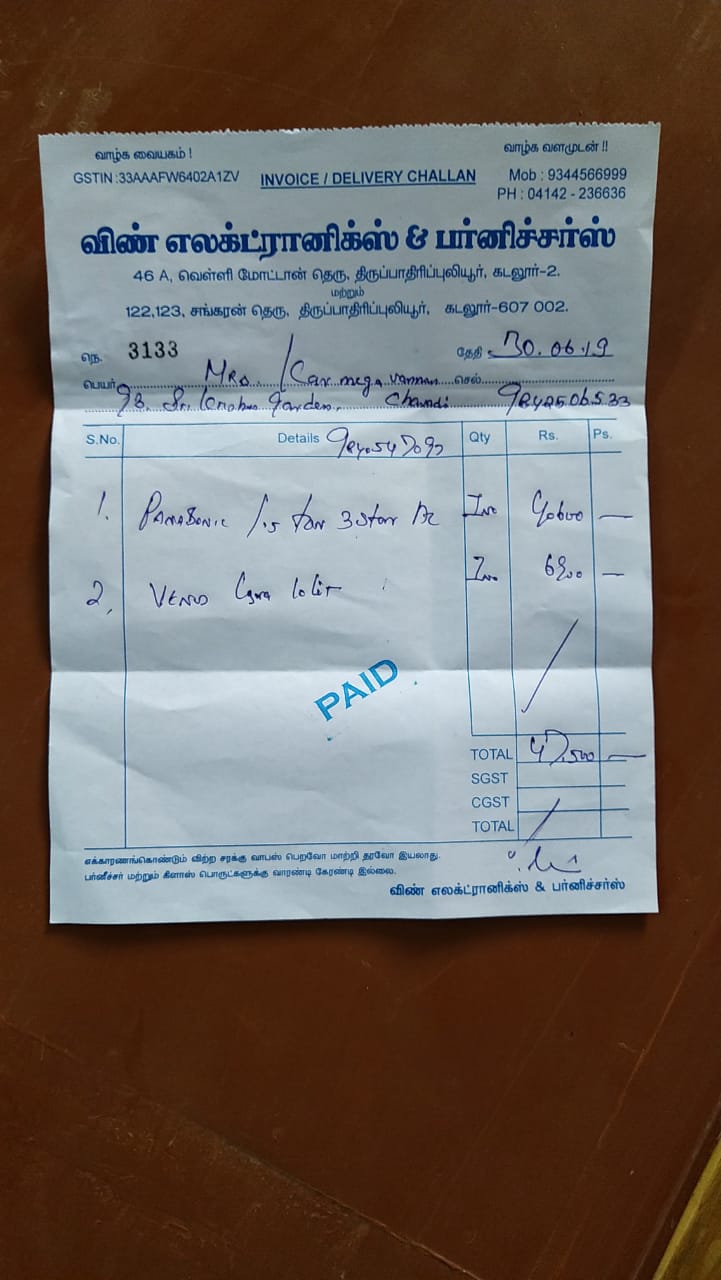 வாழ்க வையகம் ! வாழ்க வளமுடன் !!
GSTIN :33AAAFW6402A1ZV INVOICE / DELIVERY CHALLAN Mob : 9344566999
PH : 04142 - 236636
விண் எலக்ட்ரானிக்ஸ் & பர்னிச்சர்ஸ்
46 A, வெள்ளி மோட்டான் தெரு, திருப்பாதிரிப்புலியூர், கடலூர்-2.
மற்றும்
122,123, சங்கரன் தெரு, திருப்பாதிரிப்புலியூர், கடலூர்-607 002.
நெ. 3133 தேதி 30.06.19
பெயர் செல்
Garden,
S.No. Details Qty Rs. Ps.
1. PANASONIC 1.5 Ton 3 Star AC 40600 —
2, 10 Lit 6900 —
PAID
TOTAL 47,500 —
SGST
CGST
TOTAL
எக்காரணங்கொண்டும் விற்ற சரக்கு வாபஸ் பெறவோ மாற்றி தரவோ இயலாது.
பர்னீச்சர் மற்றும் கிளாஸ் பொருட்களுக்கு வாரண்டி கேரண்டி இல்லை.
விண் எலக்ட்ரானிக்ஸ் & பர்னிச்சர்ஸ்